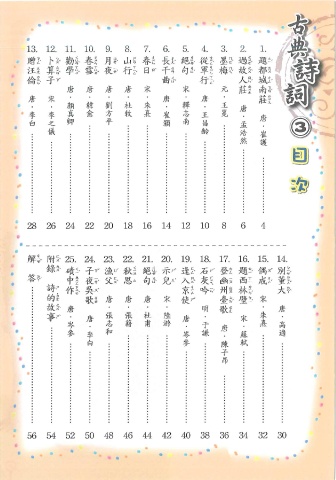 古典詩詞
3
目次
1. 題都城南莊 唐．崔護 4
2. 過故人莊 唐．孟浩然 6
3. 墨梅 元．王冕 8
4. 從軍行 唐．王昌齡 10
5. 絕句 宋．釋志南 12
6. 長干曲 唐．崔顥 14
7. 春日 宋．朱熹 16
8. 山行 唐．杜牧 18
9. 月夜 唐．劉方平 20
10. 春雪 唐．韓愈 22
11. 勸學 唐．顏真卿 24
12. 卜算子 宋．李之儀 26
13. 贈汪倫 唐．李白 28
14. 別董大 唐．高適 30
15. 偶成 宋．朱熹 32
16. 題西林壁 宋．蘇軾 34
17. 登幽州臺歌 唐．陳子昂 36
18. 石灰吟 明．于謙 38
19. 逢入京使 唐．岑參 40
20. 示兒 宋．陸游 42
21. 絕句 唐．杜甫 44
22. 秋思 唐．張籍 46
23. 漁父 唐．張志和 48
24. 子夜吳歌 唐．李白 50
25. 磧中作 唐．岑參 52
附錄 詩的故事 54
解答 56